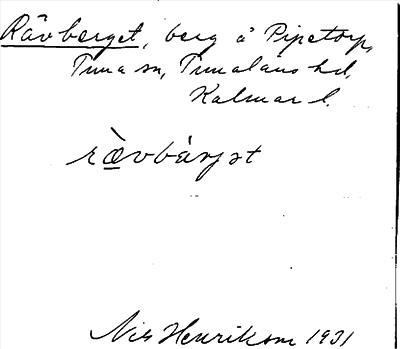 Rävberget, berg å Pipetorp,
Tuna sn, Tunaläns hd,
Kalmar l.
rævbærjət
Nils Henrikson 1931